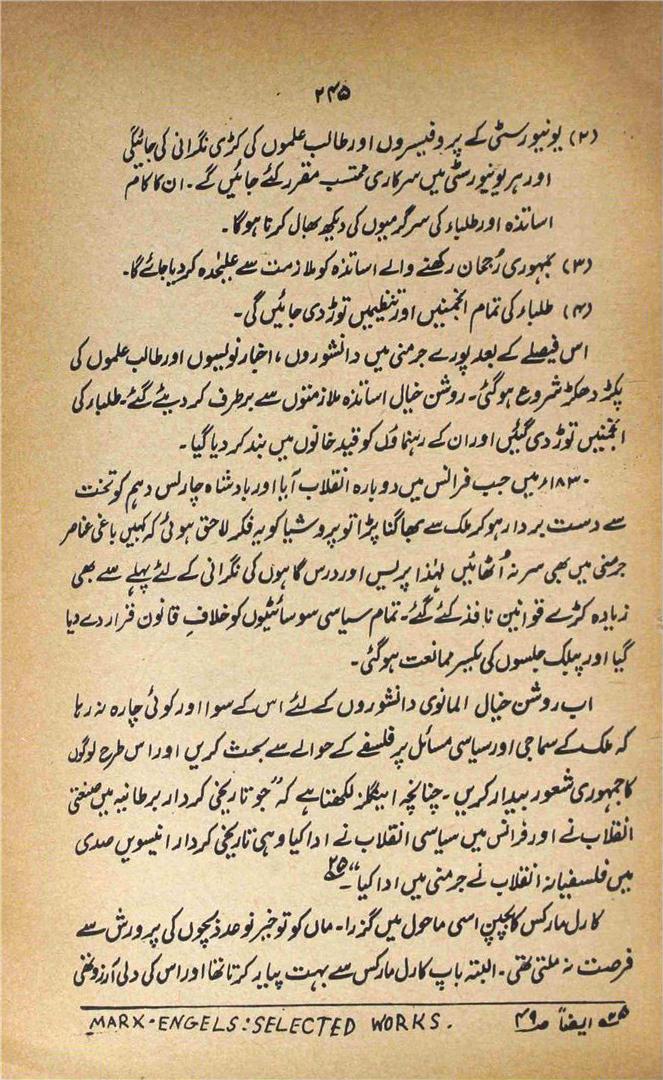 ۲۴۵
(۲) یونیورسٹی کے پروفیسروں اور طالب علموں کی کڑی نگرانی کی جائیگی
اور ہر یونیورسٹی میں سرکاری محتسب مقرر کئے جائیں گے۔ ان کا کام
اساتذہ اور طلباء کی سرگرمیوں کی دیکھ بھال کرنا ہوگا۔
(۳) جمہوری رُجحان رکھنے والے اساتذہ کو ملازمت سے علیحٰدہ کر دیا جائے گا۔
(۴) طلباء کی تمام انجمنیں اور تنظیمیں توڑ دی جائیں گی۔
اس فیصلے کے بعد پورے جرمنی میں دانشوروں، اخبار نویسوں اور طالب علموں کی
پکڑ دھکڑ شروع ہو گئی۔ روشن خیال اساتذہ ملازمتوں سے برطرف کر دیئے گئے۔ طلباء کی
انجمنیں توڑ دی گئیں اور ان کے رہنماؤں کو قید خانوں میں بند کر دیا گیا۔
۱۸۳۰ء میں جب فرانس میں دوبارہ انقلاب آیا اور بادشاہ چارلس دہم کو تخت
سے دست بردار ہو کر ملک سے بھاگنا پڑا تو پروشیا کو یہ فکر لاحق ہوئی کہ کہیں باغی عناصر
جرمنی میں بھی سر نہ اُٹھائیں لہٰذا پریس اور درس گاہوں کی نگرانی کے لئے پہلے سے بھی
زیادہ کڑے قوانین نافذ کئے گئے۔ تمام سیاسی سوسائٹیوں کو خلافِ قانون قرار دے دیا
گیا اور پبلک جلسوں کی یکسر ممانعت ہو گئی۔
اب روشن خیال المانوی دانشوروں کے لئے اس کے سوا اور کوئی چارہ نہ رہا
کہ ملک کے سماجی اور سیاسی مسائل پر فلسفے کے حوالے سے بحث کریں اور اس طرح لوگوں
کا جمہوری شعور بیدار کریں۔ چنانچہ اینگلز لکھتا ہے کہ "جو تاریخی کردار برطانیہ میں صنعتی
انقلاب نے اور فرانس میں سیاسی انقلاب نے ادا کیا وہی تاریخی کردار انیسویں صدی
میں فلسفیانہ انقلاب نے جرمنی میں ادا کیا"۔ ۲۵
کارل مارکس کا بچپن اسی ماحول میں گزرا۔ ماں کو تو خیر نو عدد بچوں کی پرورش سے
فرصت نہ ملتی تھی۔ البتہ باپ کارل مارکس سے بہت پیار کرتا تھا اور اس کی دلی آرزو تھی
۲۵ ایضاً ص ۴۹ MARX-ENGELS: SELECTED WORKS.